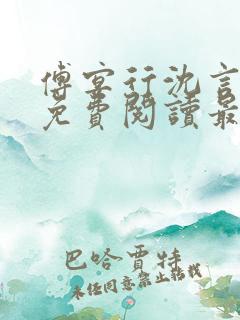 傅宴行沈言
免費閱讀最
巴哈賈特
未經同意禁止轉載